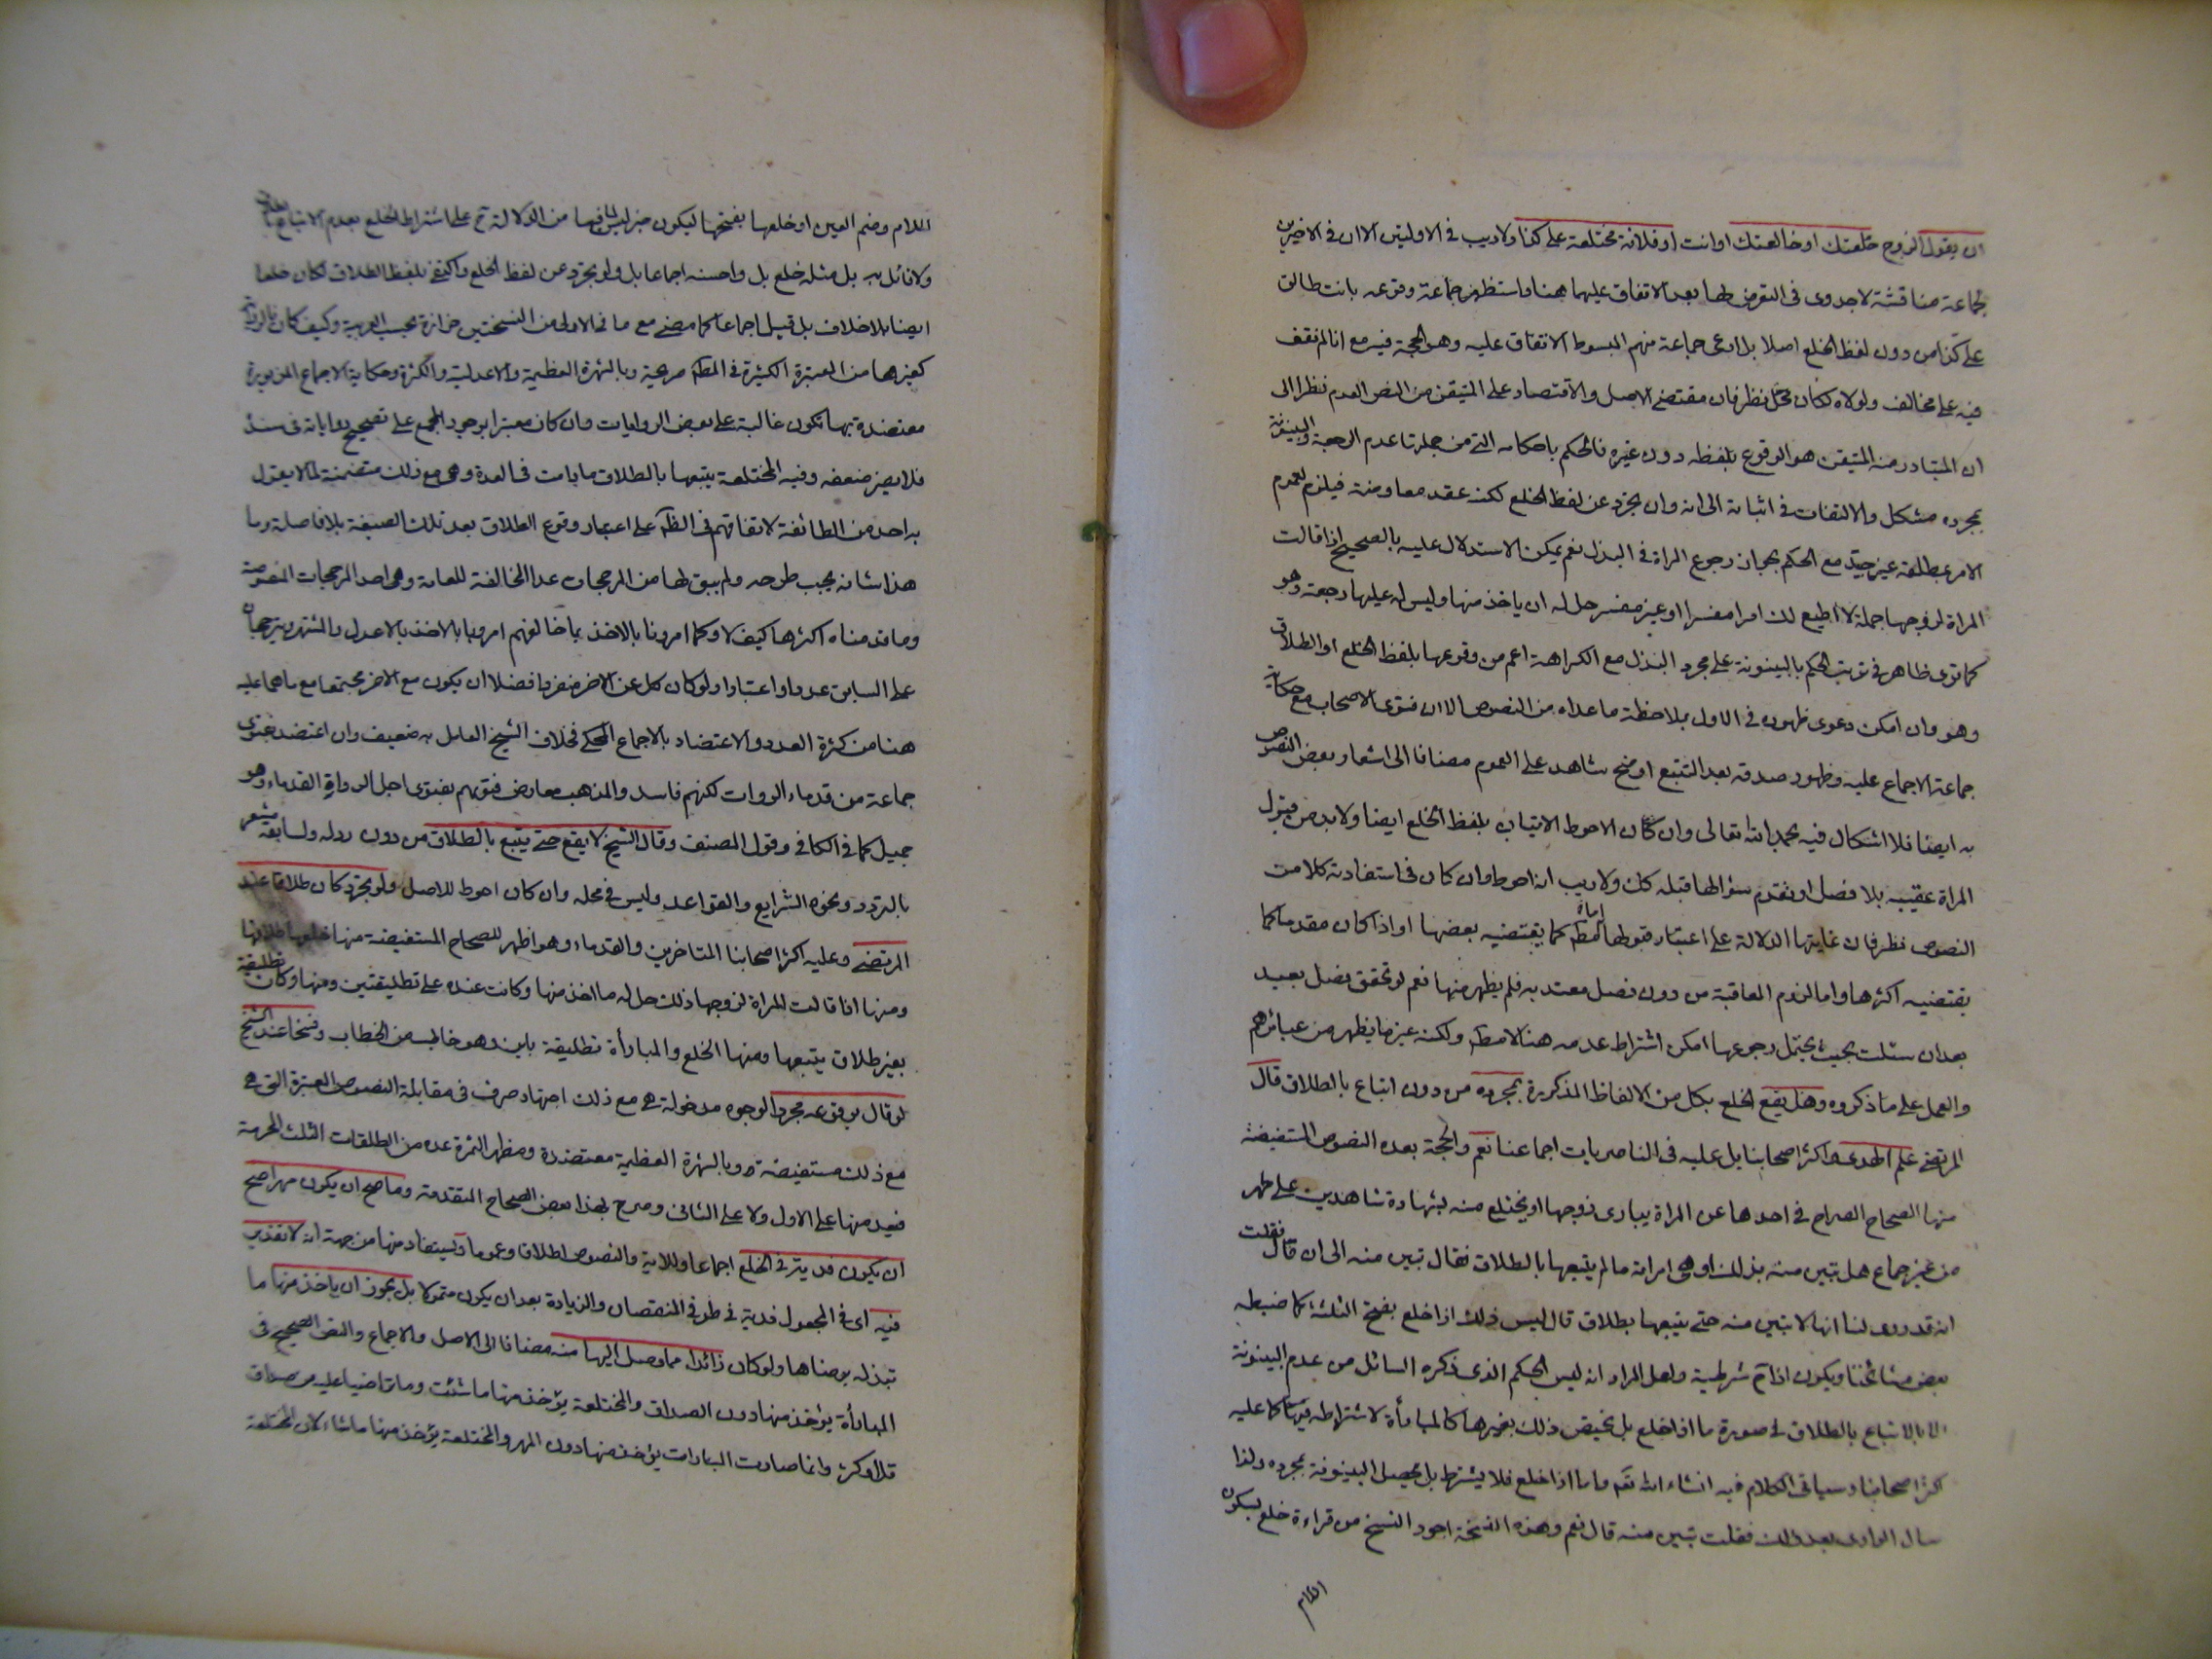 ان يقول الزوج خلعتك او خالعتك او انت او فلانة مختلعة على كذا ولا ريب في الاوليين الا ان في الاخيرين
لجماعة مناقشة لا جدوى في التعرض لها بعد الاتفاق عليهما هنا واستظهر جماعة وقوعه بانت طالق
على كذا من دون لفظ الخلع اصلا بل ادعى جماعة منهم المبسوط الاتفاق عليه وهو الحجة فيه مع انا لم نقف
فيه على مخالف ولولاه لكان محل نظر فان مقتضى الاصل والاقتصاد على المتيقن من النص العدم نظرا الى
ان المتبادر منه المتيقن هو الوقوع بلفظه دون غيره فالحكم باحكامه التي من جملتها عدم الرجعة والبينونة
بمجرده مشكل والالتفات في اثباته الى انه وان تجرد عن لفظ الخلع لكنه عقد معاوضة فيلزم لعموم
الامر بمطلقه غير جيد مع الحكم بجواز رجوع المراة في البذل نعم يمكن الاستدلال عليه بالصحيح اذا قالت
المراة لزوجها جملة لا اطيع لك امرا مفسرا او غير مفسر حل له ان ياخذ منها وليس له عليها رجعة وهو
كما ترى ظاهر في ترتب الحكم بالبينونة على مجرد البذل مع الكراهة اعم من وقوعها بلفظ الخلع او الطلاق
وهو وان امكن دعوى ظهوره في الاول بملاحظة ما عداه من النصوص الا ان فتوى الاصحاب مع حكاية
جماعة الاجماع عليه وظهور صدقه بعد التتبع اوضح شاهد على العموم مضافا الى اشعار بعض النصوص
به ايضا فلا اشكال فيه بحمد الله تعالى وان كان الاحوط الاتيان بلفظ الخلع ايضا ولا بد من قبول
المراة عقيبه بلا فصل او تقدم سؤالها قبله كك ولا ريب انه احوط وان كان في استفادته كلا من
النصوص نظر فان غايتها الدلالة على اعتبار قبولها اما مط كما يقتضيه بعضها او اذا كان مقدما كما
يقتضيه اكثرها واما لزوم المعاقبة من دون فصل معتد به فلم يظهر منها نعم لو تحقق فصل بعيد
بعد ان سئلت بحيث يحتمل رجوعها امكن اشتراط عدمه هنا لا مط ولكنه غير ما يظهر من عبائرهم
والعمل على ما ذكروه وهل يقع الخلع بكل من الالفاظ المذكورة بمجرده من دون اتباع بالطلاق قال
المرتضى علم الهدى واكثر اصحابنا بل عليه في الناصريات اجماعنا نعم والحجة بعده النصوص المستفيضة
منها الصحاح الصراح في احدها عن المراة يبارى زوجها او يختلع منه بشهادة شاهدين على طهر
من غير جماع هل تبين منه بذلك او هي امراته ما لم يتبعها بالطلاق فقال تبين منه الى ان قال فقلت
انه قد روى لنا انها لا تبين منه حتى يتبعها بطلاق قال ليس ذلك اذا خلع بفتح الثلثة كما ضبطه
بعض مشائخنا ويكون اذا شرطية ولعل المراد انه ليس الحكم الذي ذكره السائل من عدم البينونة
الا بالاتباع بالطلاق في صورة ما اذا خلع بل يختص ذلك بغيرها كالمباراة لاشتراطه فيها كما عليه
اكثر اصحابنا وسياتى الكلام فيه انشاء الله تع واما اذا خلع فلا يشترط بل يحصل البينونة بمجرده ولذا
سال الراوى بعد ذلك فقلت تبين منه قال نعم وهذه النسخة اجود النسخ من قراءة خلع بسكون
اللام
اللام وضم العين او خلعها بفتحها ليكون خبر ليس لما فيها من الدلالة ح على اشتراط الخلع بعدم الاتباع بالطلاق
ولا قائل به بل مثله خلع بل واحسنه اجماعا بل ولو تجرد عن لفظ الخلع واكتفى بلفظ الطلاق لكان خلعا
ايضا بلا خلاف بل قيل اجماعا كما مضى مع ما في الاولى من النسختين حزازة بحسب العربية وكيف كان فالرواية
كغيرها من المعتبرة الكثيرة في المط صريحة وبالشهرة العظيمة والاعدلية والكثرة وحكاية الاجماع المزبورة
معتضدة بها تكون غالبة على بعض الروايات وان كان معتبرا بوجود المجمع على تصحيح رواياته في سنده
فلا يضر ضعفه وفيه المختلعة يتبعها بالطلاق ما دامت في العدة وهي مع ذلك متضمنة لما لا يقول
به احد من الطائفة لاتفاقهم في الظ على اعتبار وقوع الطلاق بعد تلك الصيغة بلا فاصلة وما
هذا شانه يجب طرحه ولم يبق لها من المرجحات عدا المخالفة للعامة وهي احد المرجحات المنصوصة
وما قدمناه اكثرها كيف لا وكما امرونا بالاخذ بما خالفهم امرونا بالاخذ بالاعدل والمشتهر ويترجحان
على السابق عددا واعتبارا ولو كان كل عن الاخر منفردا فضلا ان يكون مع الاخر مجتمعا مع ما هما عليه
هنا من كثرة العدد والاعتضاد بالاجماع المحكى فخلاف الشيخ العامل به ضعيف وان اعتضد بفتوى
جماعة من قدماء الروات لكنهم فاسد والمذهب معارض فتويهم بفتوى اجل الرواة القدماء وهو
جميل كما في الكافي وقول المصنف وقال الشيخ لا يقع حتى يتبع بالطلاق من دون رد له ولسابقه مشعر
بالتردد ونحوه الشرايع والقواعد وليس في محله وان كان احوط للاصل ولو تجرد كان طلاقا عند
المرتضى وعليه اكثر اصحابنا المتاخرين والقدماء وهو اظهر للصحاح المستفيضة منها خلعها طلاقها
ومنها اذا قالت المراة لزوجها ذلك حل له ما اخذ منها وكانت عنده على تطليقتين ومنها وكان تطليقة
بغير طلاق يتبعها ومنها الخلع والمباراة تطليقة باين وهو خاطب من الخطاب وفسخا عند الشيخ
لو قال بوقوعه مجردا لوجوه مدخولة هي مع ذلك اجتهاد صرف في مقابلة النصوص المعتبرة التي هي
مع ذلك مستفيضة وبالشهرة العظيمة معتضدة ومظهر الثمرة عده من الطلقات الثلث المحرمة
فيعد منها على الاول ولا على الثانى وصرح بهذا بعض الصحاح المتقدمة وما صح ان يكون مهرا صح
ان يكون فدية في الخلع اجماعا وللاية والنصوص اطلاقا وعموما ويستفاد منها من جهة انه لا تقدير
فيه اى في المجعول فدية في طرفي النقصان والزيادة بعد ان يكون متمولا بل يجوز ان ياخذ منها ما
تبذله برضاها ولو كان زائدا مما وصل اليها منه مضافا الى الاصل والاجماع والنص الصحيح في
المباراة يؤخذ منها دون الصداق والمختلعة يؤخذ منها ما شئت وما تراضيا عليه من صداق
قل او كثر وانما صارت المبارات يؤخذ منها دون المهر والمختلعة يؤخذ منها ما شاء لان المختلعة